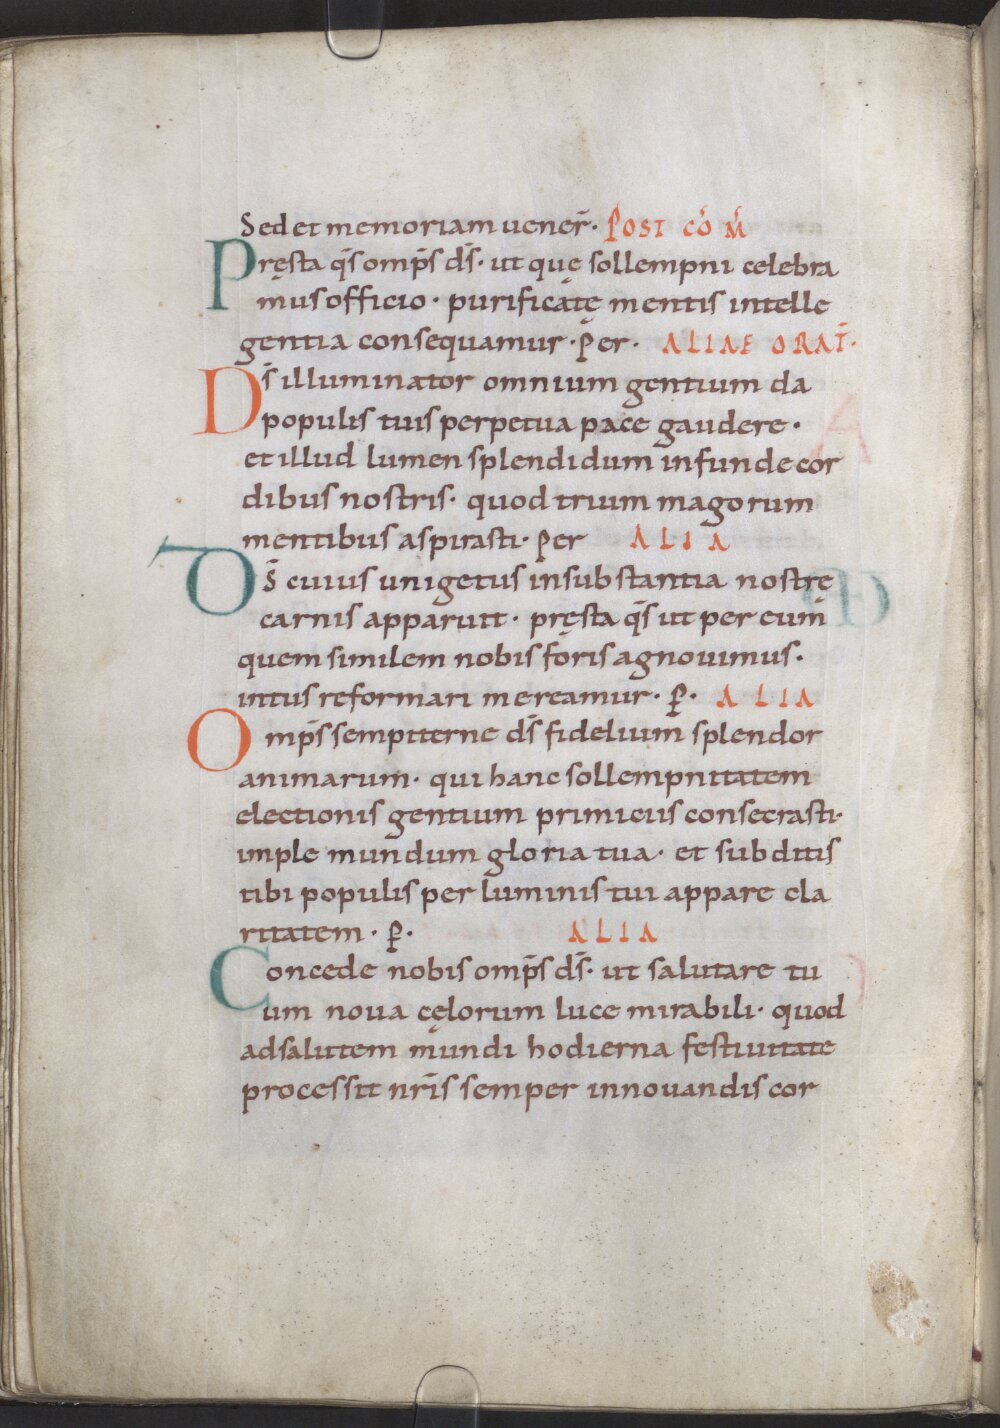 Sed et memoriam uener̄· POST CŌM̄
Pręsta q̄s omp̄s d̄s· ut quę sollempni celebra
mus officio· purificatę mentis intelle
gentia consequamur· Per· ALIAE ORAT̄·
D̄s illuminator omnium gentium da
populis tuis perpetua pace gaudere·
et illud lumen splendidum infunde cor
dibus nostris· quod trium magorum
mentibus aspirasti· Per ALIA
D̄s cuius unigetus in substantia nostrę
carnis apparuit· pręsta q̄s ut per eum
quem similem nobis foris agnouimus·
intus reformari mereamur· P̄· ALIA
Omp̄s sempiterne d̄s fidelium splendor
animarum· qui hanc sollempnitatem
electionis gentium primiciis consecrasti·
imple mundum gloria tua· et subditis
tibi populis per luminis tui appare cla
ritatem· P̄· ALIA
Concede nobis omp̄s d̄s· ut salutare tu
um noua cęlorum luce mirabili· quod
ad salutem mundi hodierna festiuitate
processit nr̄is semper innouandis cor